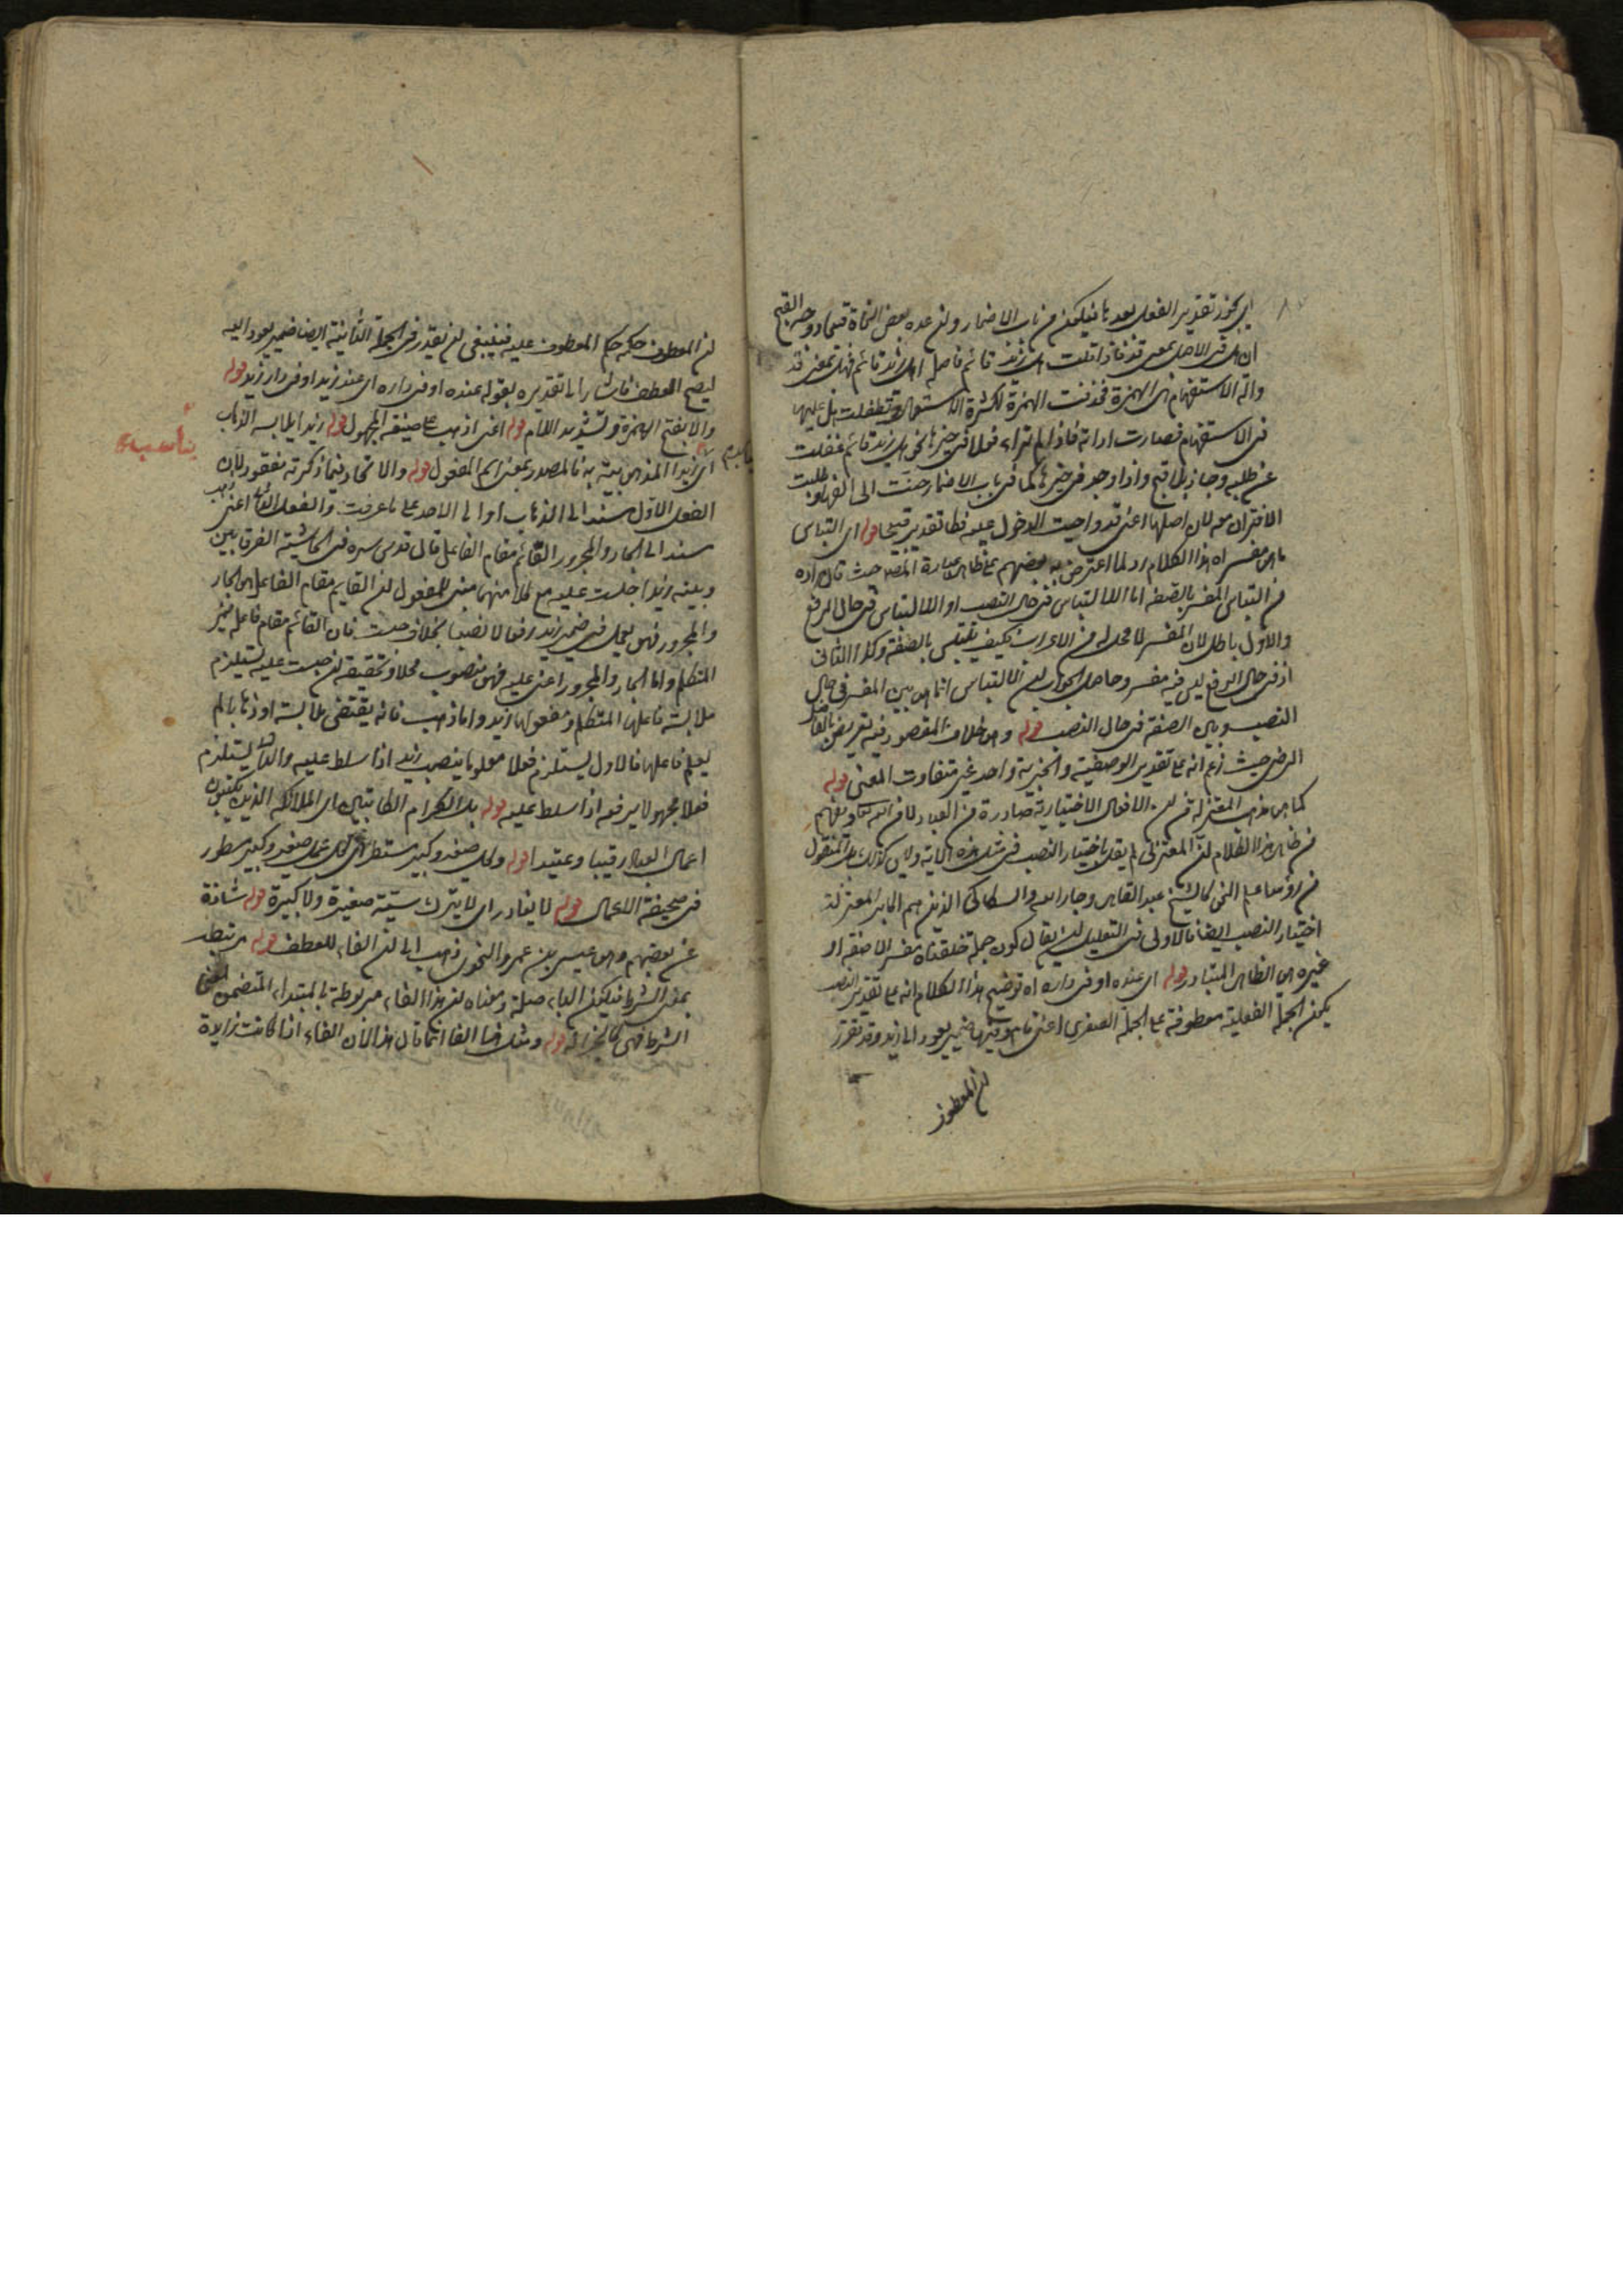 اي يجوز تقدير الفعل بعدها فيكون من باب الاضمار ولن عده بعض النحاة قبيحا ووجه القبح
ان هل في الاصل بمعنى قد فاذا قلت هل زيد قائم فاصله اهل زيد قائم فهل بمعنى قد
والة الاستفهام هي الهمزة فحذفت الهمزة لكثرة الاستعمال وتطفلت هل عليها
في الاستفهام فصارت اداته فاذا لم تراء فعلا في حيزها نحو هل زيد قائم غفلت
عن طلبه وجاز بلا قبح واذا وجد في حيزها كما في باب الاضمار حنت الى الفها وطلبت
الاقتران معه لان اصلها اعني قد واجبت الدخول عليه فكان تقديره قبيحا قوله اي التباس
ما هو مفسر اه هذا الكلام رد لما اعترض به بعضهم على ظاهر عبارة المص حيث قال مراده
من التباس المفسر بالصفة اما الالتباس في حال النصب او الالتباس في حال الرفع
والاول باطل لان المفسر لا محل له من الاعراب فكيف يلتبس بالصفة وكذا الثاني
اذ في حال الرفع ليس فيه مفسر وحاصل الجواب لن الالتباس انما هو بين المفسر في حال
النصب وبين الصفة في حال النصب قوله وهو خلاف المقصود فيه تعريض بالفاضل
الرضي حيث زعم انه على تقدير الوصفية والخبرية واحد غير متفاوت المعنى قوله
كما هو مذهب المعتزلة من لن الافعال الاختيارية صادرة من العباد لا من الله تعالى ويفهم
من ظاهر هذا الكلام لن المعتزلي لم يقل باختيار النصب في مثل هذه الآية وليس كذلك بل المنقول
من رؤساء علم النحو كالشيخ عبد القاهر وجار الله والسكاكي الذين هم اكابر المعتزلة
اختيار النصب ايضا فالاولى في التعليل لن يقال كون جملة خلقناه مفسرا لا صفة او
غيره هو الظاهر المتبادر قوله اي عنده او في داره اه توضيح هذا الكلام انه على تقدير النصب
يكون الجملة الفعلية معطوفة على الجملة الصغرى اعني قام وفيها ضمير يعود الى زيد وقد تقرر
لن المعطوف
لن المعطوف حكمه حكم المعطوف عليه فينبغي لن يقدر في الجملة الثانية ايضا ضمير يعود اليه
ليصح العطف فاشار الى تقديره بقوله عنده او في داره اي عند زيد او في دار زيد قوله
والا بفتح الهمزة وتشديد اللام قوله اعني اذهب على صيغة المجهول قوله زيدا يلابسه الذهاب
اي زيدا المذهوب به فالمصدر بمعنى اسم المفعول قوله والاتحاد فيما ذكرته مفقود لان
الفعل الاول مسند الى الذهاب او الى الاحد على ما عرفت والفعل الثاني اعني ذهب
مسند الى الجار والمجرور القائم مقام الفاعل قال قدس سره في الحاشية الفرق بين
وبينه زيدا جلست عليه مع كلا منهما مبني للمفعول لن القايم مقام الفاعل هو الجار
والمجرور فهو يعمل في ضمير زيد رفعا لا نصبا بخلاف حبست فان القائم مقام فاعله ضمير
المتكلم واما الجار والمجرور اعني عليه فهو منصوب محلا وتحقيقه لن حبست عليه يستلزم
ملابسة فاعلها المتكلم ومفعولها زيد واما ذهب فانه يقتضي ملابسة او ذهابا لم
يعلم فاعلها فالاول يستلزم فعلا معلوما ينصب زيد اذا سلط عليه والثاني يستلزم
فعلا مجهولا يرفعه اذا سلط عليه قوله بل الكرام الكاتبين اي الملائكة الذين يكتبون
اعمال العباد رقيبا وعتيدا قوله وكل صغير وكبير مستطر اي كل عمل صغير وكبير مسطور
في صحيفة الاعمال قوله لا يغادر اي لا يترك سيئة صغيرة ولا كبيرة قوله شاذة
عن بعضهم وهو عيسى بن عمرو النحوي ذهب الى لن الفاء للعطف قوله مرتبطة
بمعنى الشرط فيكون الباء صلة ومعناه لن هذا الفاء مربوطة بالمبتداء المتضمن لمعنى
الشرط فهي كالجزاء له قوله ومثل هذا الفاء انما قال هذا لان الفاء اذا كانت زايدة